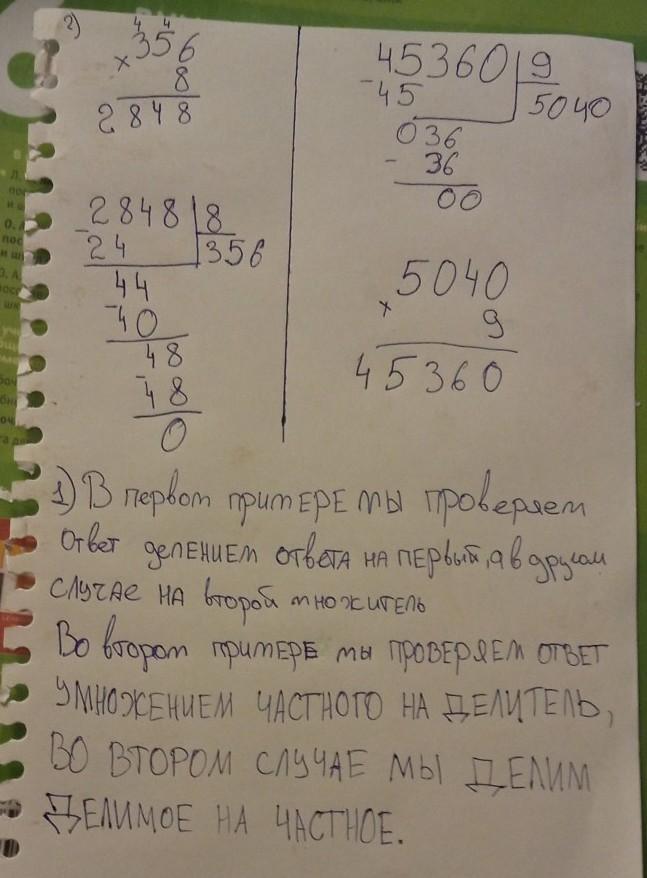 2)
4 4
× 356
8
2848
2848 | 8
- 24 | 356
44
- 40
48
- 48
0
45360 | 9
- 45 | 5040
036
- 36
00
5040
× 9
45360
1) В первом примере мы проверяем
ответ делением ответа на первый, а в другом
случае на второй множитель
Во втором примере мы проверяем ответ
умножением частного на делитель,
во втором случае мы делим
делимое на частное.